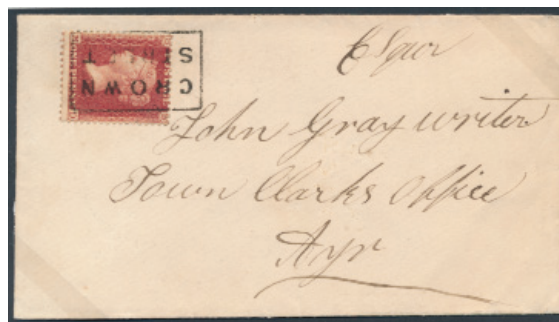 CROWN
STREET
Esqur
John Gray writer
Town Clarks office
Ayr